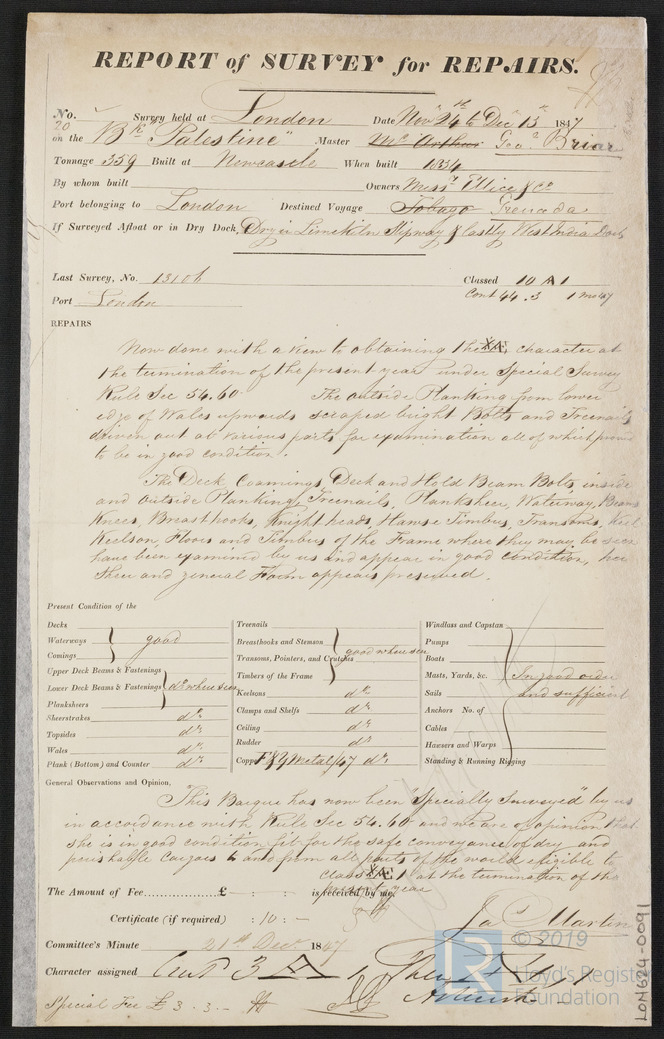 REPORT of SURVEY for REPAIRS.
No. 20 Survey held at London Date Nov 24th to Decr 13th 1847
on the Bk "Palestine" Master McArthur Geo. Briar
Tonnage 359 Built at Newcastle When built 1834
By whom built Owners Messrs Ellice & Co
Port belonging to London Destined Voyage Tobago Grenada
If Surveyed Afloat or in Dry Dock, Dry in Limekiln Slipway & lastly West India Dock
Last Survey, No. 13106 Classed 10 A 1
Port London Cont 44. 3 1 mo 47
REPAIRS
Now done with a view to obtaining the Æ character at
the termination of the present year under Special Survey
Rule Sec 54. 60. The outside Planking from lower
edge of Wales upwards scraped bright Bolts and Treenails
driven out at various parts for examination all of which proved
to be in good condition.
The Deck, Coamings, Deck and Hold Beam Bolts inside
and outside Planking, Treenails, Planksheer, Waterway, Beams
Knees, Breasthooks, Knight heads, Hawse Timbers, Transoms, Keel
Keelson, Floors and Timbers of the Frame where they may be seen
have been examined by us and appear in good condition, her
Sheer and general Form appears preserved.
Present Condition of the
Decks
Waterways good
Comings
Upper Deck Beams & Fastenings
Lower Deck Beams & Fastenings do where seen
Planksheers
Sheerstrakes do
Topsides do
Wales do
Plank (Bottom) and Counter do
Treenails
Breasthooks and Stemson
Transoms, Pointers, and Crutches good where seen
Timbers of the Frame
Keelsons do
Clamps and Shelfs do
Ceiling do
Rudder do
Copper F & Y Metal /47 do
Windlass and Capstan
Pumps
Boats
Masts, Yards, &c. In good order
Sails and sufficient
Anchors No. of
Cables
Hawsers and Warps
Standing & Running Rigging
General Observations and Opinion,
This Barque has now been "Specially Surveyed" by us
in accordance with Rule Sec 54. 60 and we are of opinion that
she is in good condition, fit for the safe conveyance of dry and
perishable cargoes to and from all parts of the world eligible to
class Æ 1 at the termination of the
present year
The Amount of Fee £ - : - : is received by me,
Certificate (if required) : 10 : -
Jas Martin
Committee's Minute 21st Decr 1847
Character assigned Cont 3 Æ 1
Special Fee £ 3 . 3 . -
© 2019
Lloyd's Register
Foundation
LR
LON624-0091